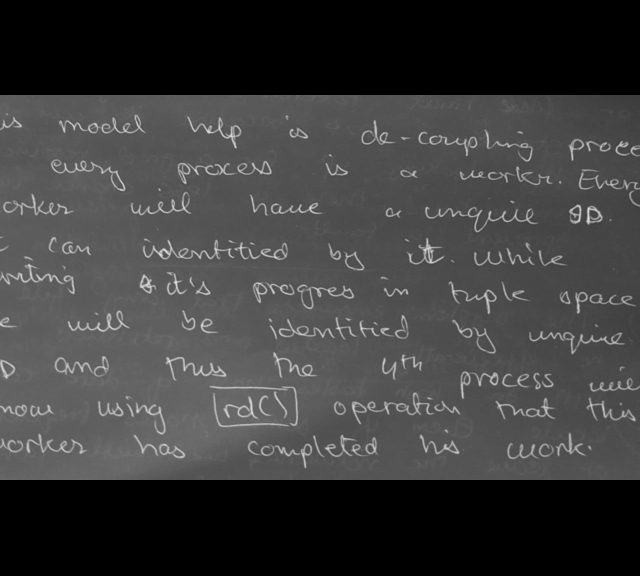 is model help is de-coupling proce
every process is a worker. Every
orker will have a unquie ID.
t can identitied by it. while
writing it's progres in tuple space
e will be identitied by unquie
D and thus the 4th process will
now using rd() operation that this
worker has completed his work.